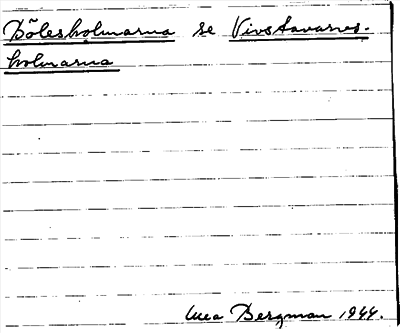 Bölesholmarna se Vivstavarvs-
holmarna
Moa Bergman 1944.